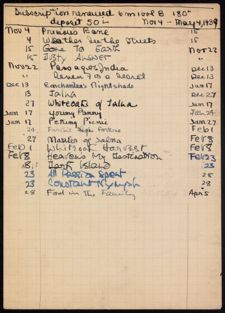 Subscription renewed 6 m 1 vol B 180
deposit 50 Nov 4 - May 4, 1939
Nov 4 Promises Home 15
4 Weather in the Streets 15
15 Gone to Earth Nov 22
15 Dusty Answer "
Nov 22 Passage to India Dec 13
" Seven for a Secret Dec 13
Dec 13 Rachmaninov's
13 Jalna Dec 27
27 Whiteoaks of Jalna Jan 17
Jan 17 Young Renny Jan 24
Jan 17 Peking Picnic Jan 27
24 Finch's Fortune Feb 1
27 Master of Jalna Feb 8
Feb 1 Whiteoak Harvest Feb 8
Feb 8 Heaven's My Destination Feb 23
Feb 8 Dark Island 23
23 All Passion Spent 28
23 Constant Nymph 28
28 in the Family Apr 5